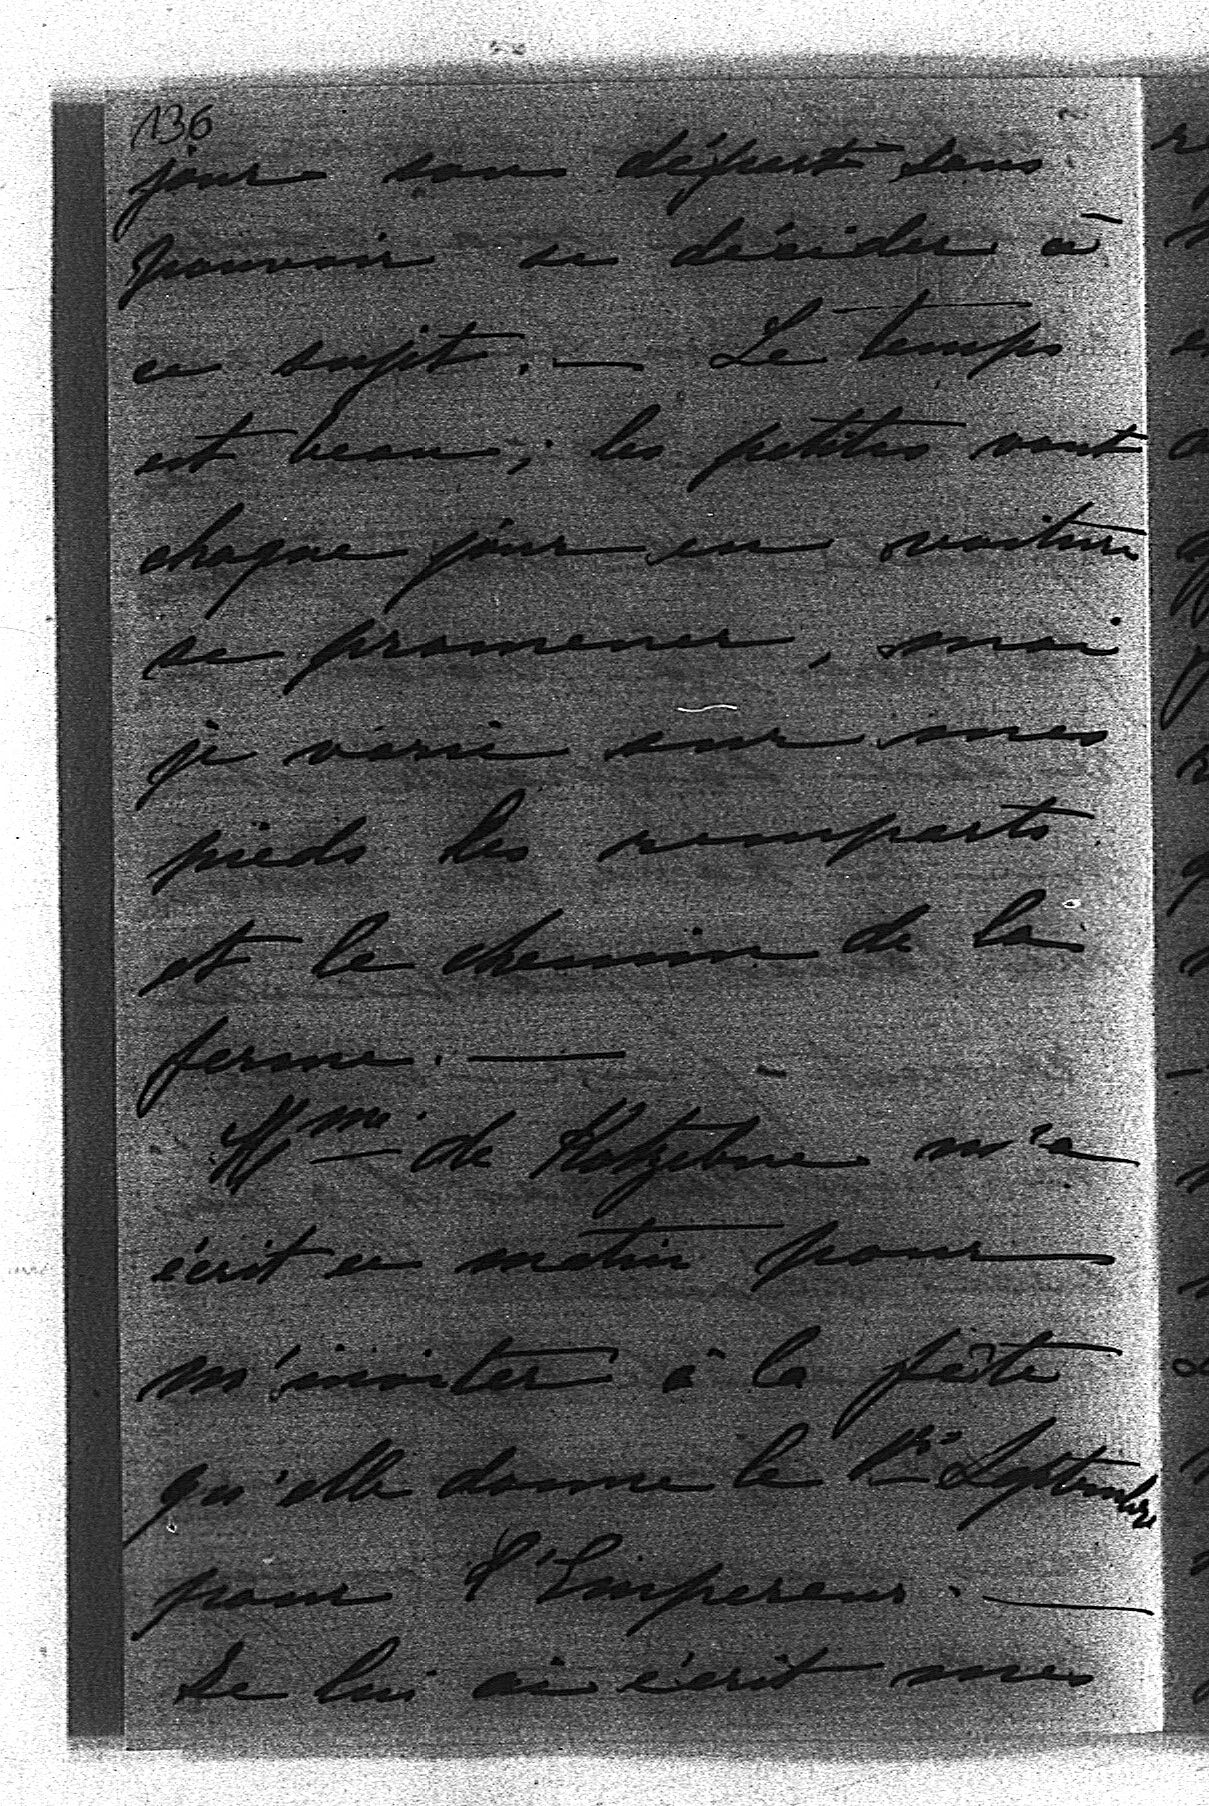 136
jour son départ sans
pouvoir se décider à
ce sujet. — Le temps
est beau; les petites vont
chaque jour en voiture
se promener, moi
je varie sur mes
pieds les remparts
et le chemin de la
ferme. —
Mme de Kotzebue m'a
écrit ce matin pour
m'inviter à la fête
qu'elle donne le 1er Septembre
pour l'Empereur. —
Je lui ai écrit mes